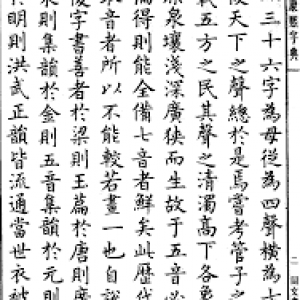 康熙字典
二
三十六字為母從為四聲橫為七
後天下之聲總於是焉嘗考管子之
載五方之民其聲之清濁高下各象
原泉壤淺深廣狹而生故于五音
偏得則能全備七音者鮮矣此歷代
取音者所以不能較若畫一也自說
後字書善者於梁則玉篇於唐則廣
宋則集韻於金則五音集韻於元則
於明則洪武正韻皆流通當世衣被